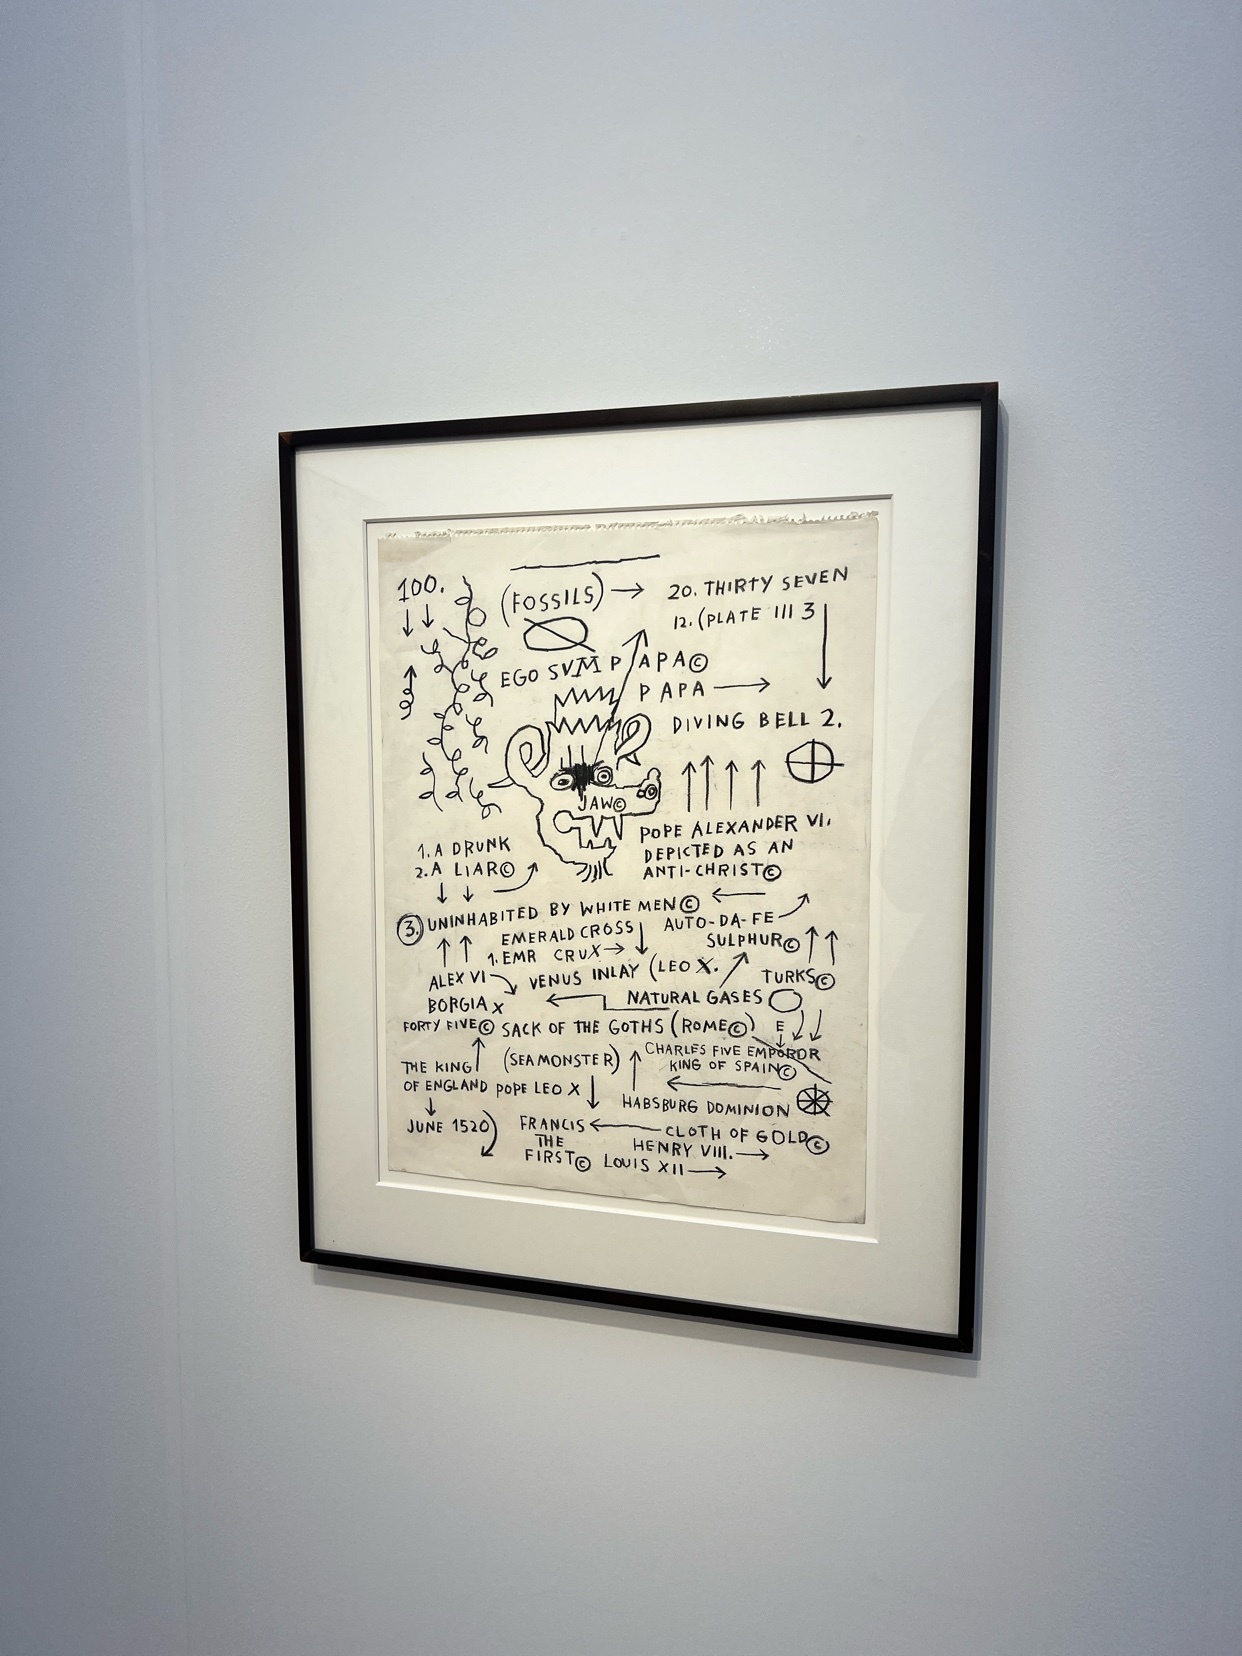 100.
(FOSSILS) → 20. THIRTY SEVEN
12. (PLATE III 3
EGO SVM PAPA©
PAPA →
DIVING BELL 2.
JAW©
POPE ALEXANDER VI.
DEPICTED AS AN
ANTI-CHRIST©
1. A DRUNK
2. A LIAR©
3. UNINHABITED BY WHITE MEN© ←
EMERALD CROSS
AUTO-DA-FE
SULPHUR©
1. EMR CRUX →
ALEX VI
VENUS INLAY (LEO X.
TURKS©
BORGIA X
← NATURAL GASES
FORTY FIVE© SACK OF THE GOTHS (ROME©)
E
CHARLES FIVE EMPOROR
KING OF SPAIN©
THE KING
OF ENGLAND
(SEA MONSTER)
POPE LEO X
HABSBURG DOMINION
JUNE 1520)
FRANCIS ← CLOTH OF GOLD©
THE
FIRST©
HENRY VIII. →
LOUIS XII →